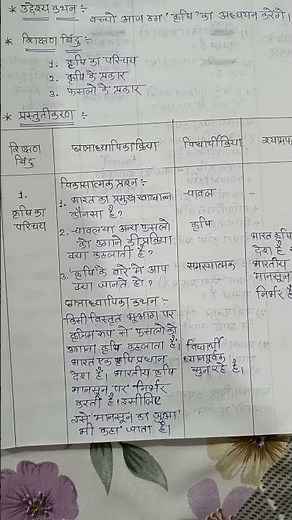 * उद्देश्य कथन ÷ बच्चों आज हम 'कृषि' का अध्ययन करेंगे।
* शिक्षण बिंदु ÷
1. कृषि का परिचय
2. कृषि के प्रकार
3. फसलों के प्रकार
* प्रस्तुतीकरण ÷
शिक्षण बिंदु
छात्राध्यापिका क्रिया
विद्यार्थी क्रिया
1.
कृषि का
परिचय
विकासात्मक प्रश्न ÷
1. भारत का प्रमुख खाद्यान्न
कौनसा है?
2. चावल या अन्य फसलों
को उगाने की प्रक्रिया
क्या कहलाती है?
3. 'कृषि' के बारे में आप
क्या जानते हो?
छात्राध्यापिका कथन ÷
किसी विस्तृत भूभाग पर
कृत्रिम रूप से फसलों को
उगाना कृषि कहलाता है।
भारत एक कृषि प्रधान
देश है। भारतीय कृषि
मानसून पर निर्भर
करती है। इसीलिए
इसे 'मानसून का जुआ'
भी कहा जाता है।
चावल
कृषि
समस्यात्मक
विद्यार्थी
ध्यानपूर्वक
सुन रहे हैं।
भारत कृषि
देश है
भारतीय
मानसून
निर्भर है